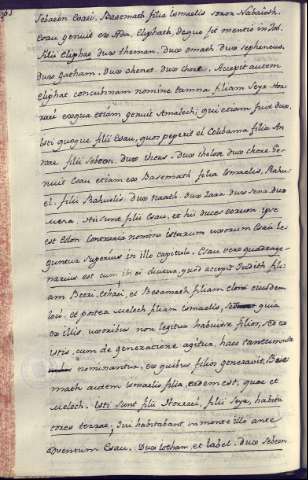 Sebeon Evaei. Basemath filia Ismaelis soror Nabaioth.
Esau genuit ex Ada. Eliphath, de quo fit mentio in Job.
Filii Eliphaz dux Theman. Dux omath dux sepheneus,
Dux gatham. Dux chenez. dux chore. Accepit autem
Eliphat concubinam nomine tamna filiam Seyr
exqua etiam genuit Amalech; qui etiam fuit dux.
Isti quoque filii Esau, quos peperit ei Oolibama filia
filii Sebeon. dux Iheus. Dux Ihelon dux chore. Ge-
nuit Esau etiam ex Basemath filia Ismaelis, Rahu
el. filii Rahuelis. dux naath. Dux Zara dux Sena dux
Meza. Hi sunt filii Esau, et hi duces eorum ipse
est Edon contraria nomina istarum uxorum Esau le
guntur superius in illo capitulo. Esau vero quadrage-
narius est cum in ei dicitur, quod accepit Judith fili
am Beeri ethaei, et Basamath filiam elon eiusdem
loci. et postea meleth filiam Ismaelis, quia
ex illis uxoribus non legitur habuisse filios, sed ex
istis. cum de generatione agitur, haec tantummodo
nominantur, ex quibus filios generavit. Base
math autem Ismaelis filia, eadem est, quae et
meleth. Isti sunt filii Horraei, filii Seyr, habita
tores terrae, qui habitabant in monte illo ante
adventum Esau. Dux lothan, et sobal. dux Sebeon